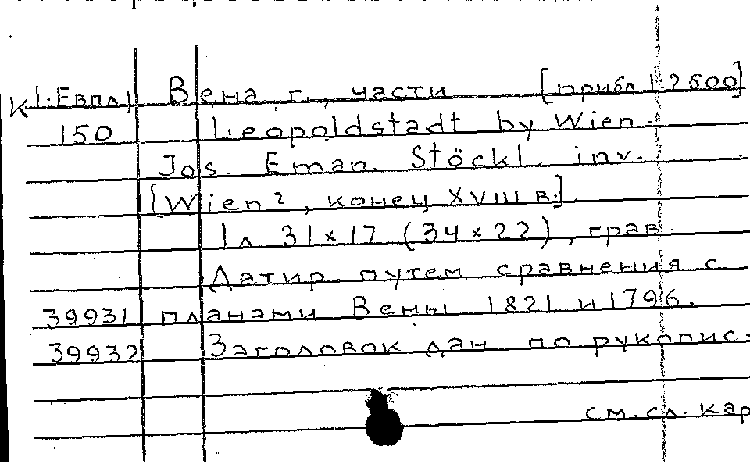 К 1-Евпл Вена г., части [прибл 1:2600]
150 Leopoldstadt by Wien.
Jos. Eman. Stöckl. inv.
[Wien?, конец XVIII в.]
1 л 31×17 (34×22), грав
Датир. путем сравнения с
39931 планами Вены 1821 и 1796.
39932 Заголовок дан по рукопис-
см. сл. кар